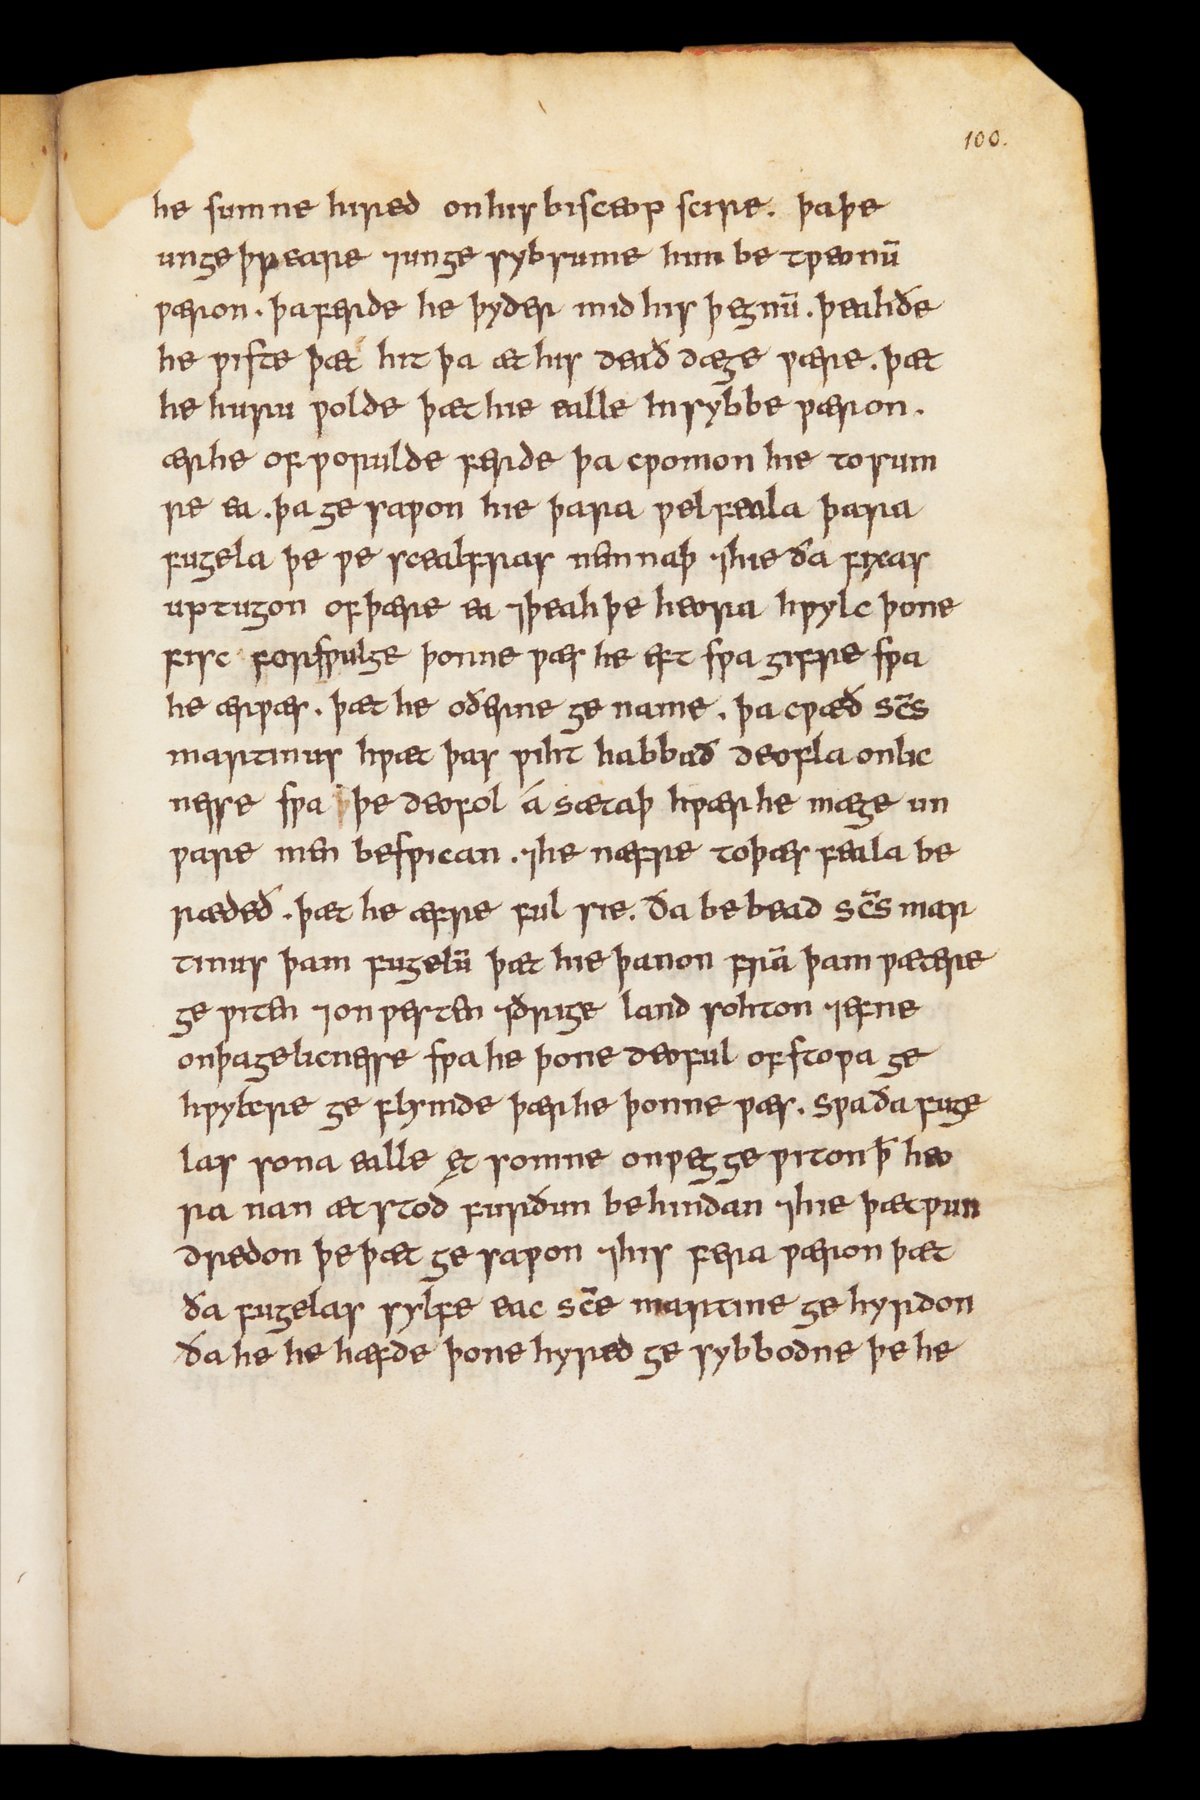 100.
he sumne hired on his bisceop scire. þa þe
ungeþƿeare ⁊ ungesybsume him betƿeonū
ƿæron. þa ferde he þyder mid his þegnū. þeahðe
he ƿiste þæt hit þa æt his deaðdæge ƿære. þæt
he huru ƿolde þæt hie ealle in sybbe ƿæron.
ær he of ƿorulde ferde þa cƿomon hie to sum
re ea. þa gesaƿon hie þara ƿel feala þara
fugela þe ƿe scealfras nemnaþ ⁊ hie ða fixas
up tugon of þære ea ⁊ þeah þe heora hƿylc þone
fisc forsƿulge þonne ƿæs he eft sƿa gifre sƿa
he ær ƿæs. þæt he oðerne gename. þa cƿæð sc̄s
martinus hƿæt þas ƿiht habbað deofla onlic
nesse sƿa þe deofol á sætaþ hƿær he mæge un
ƿare men besƿican. ⁊ he næfre to þæs feala be
rædeð. þæt he æfre ful sie. ða bebead sc̄s mar
tinus þam fugelū þæt hie þanon frā þam ƿætere
geƿiten ⁊ on ƿesten ⁊ ðrige land sohton ⁊ efne
on þa gelicnesse sƿa he þone deoful of stoƿa ge
hƿylcre geflymde þær he þonne ƿæs. sƿa ða fuge
las sona ealle ęt somne onƿeg geƿiton ꝥ heo
ra nan ætstod furðun behindan ⁊ hie þæt ƿun
dredon þe þæt gesaƿon ⁊ his fera ƿæron þæt
ða fugelas sylfe eac sc̄e martine gehyrdon
ða he he hæfde þone hyred gesybbodne þe he